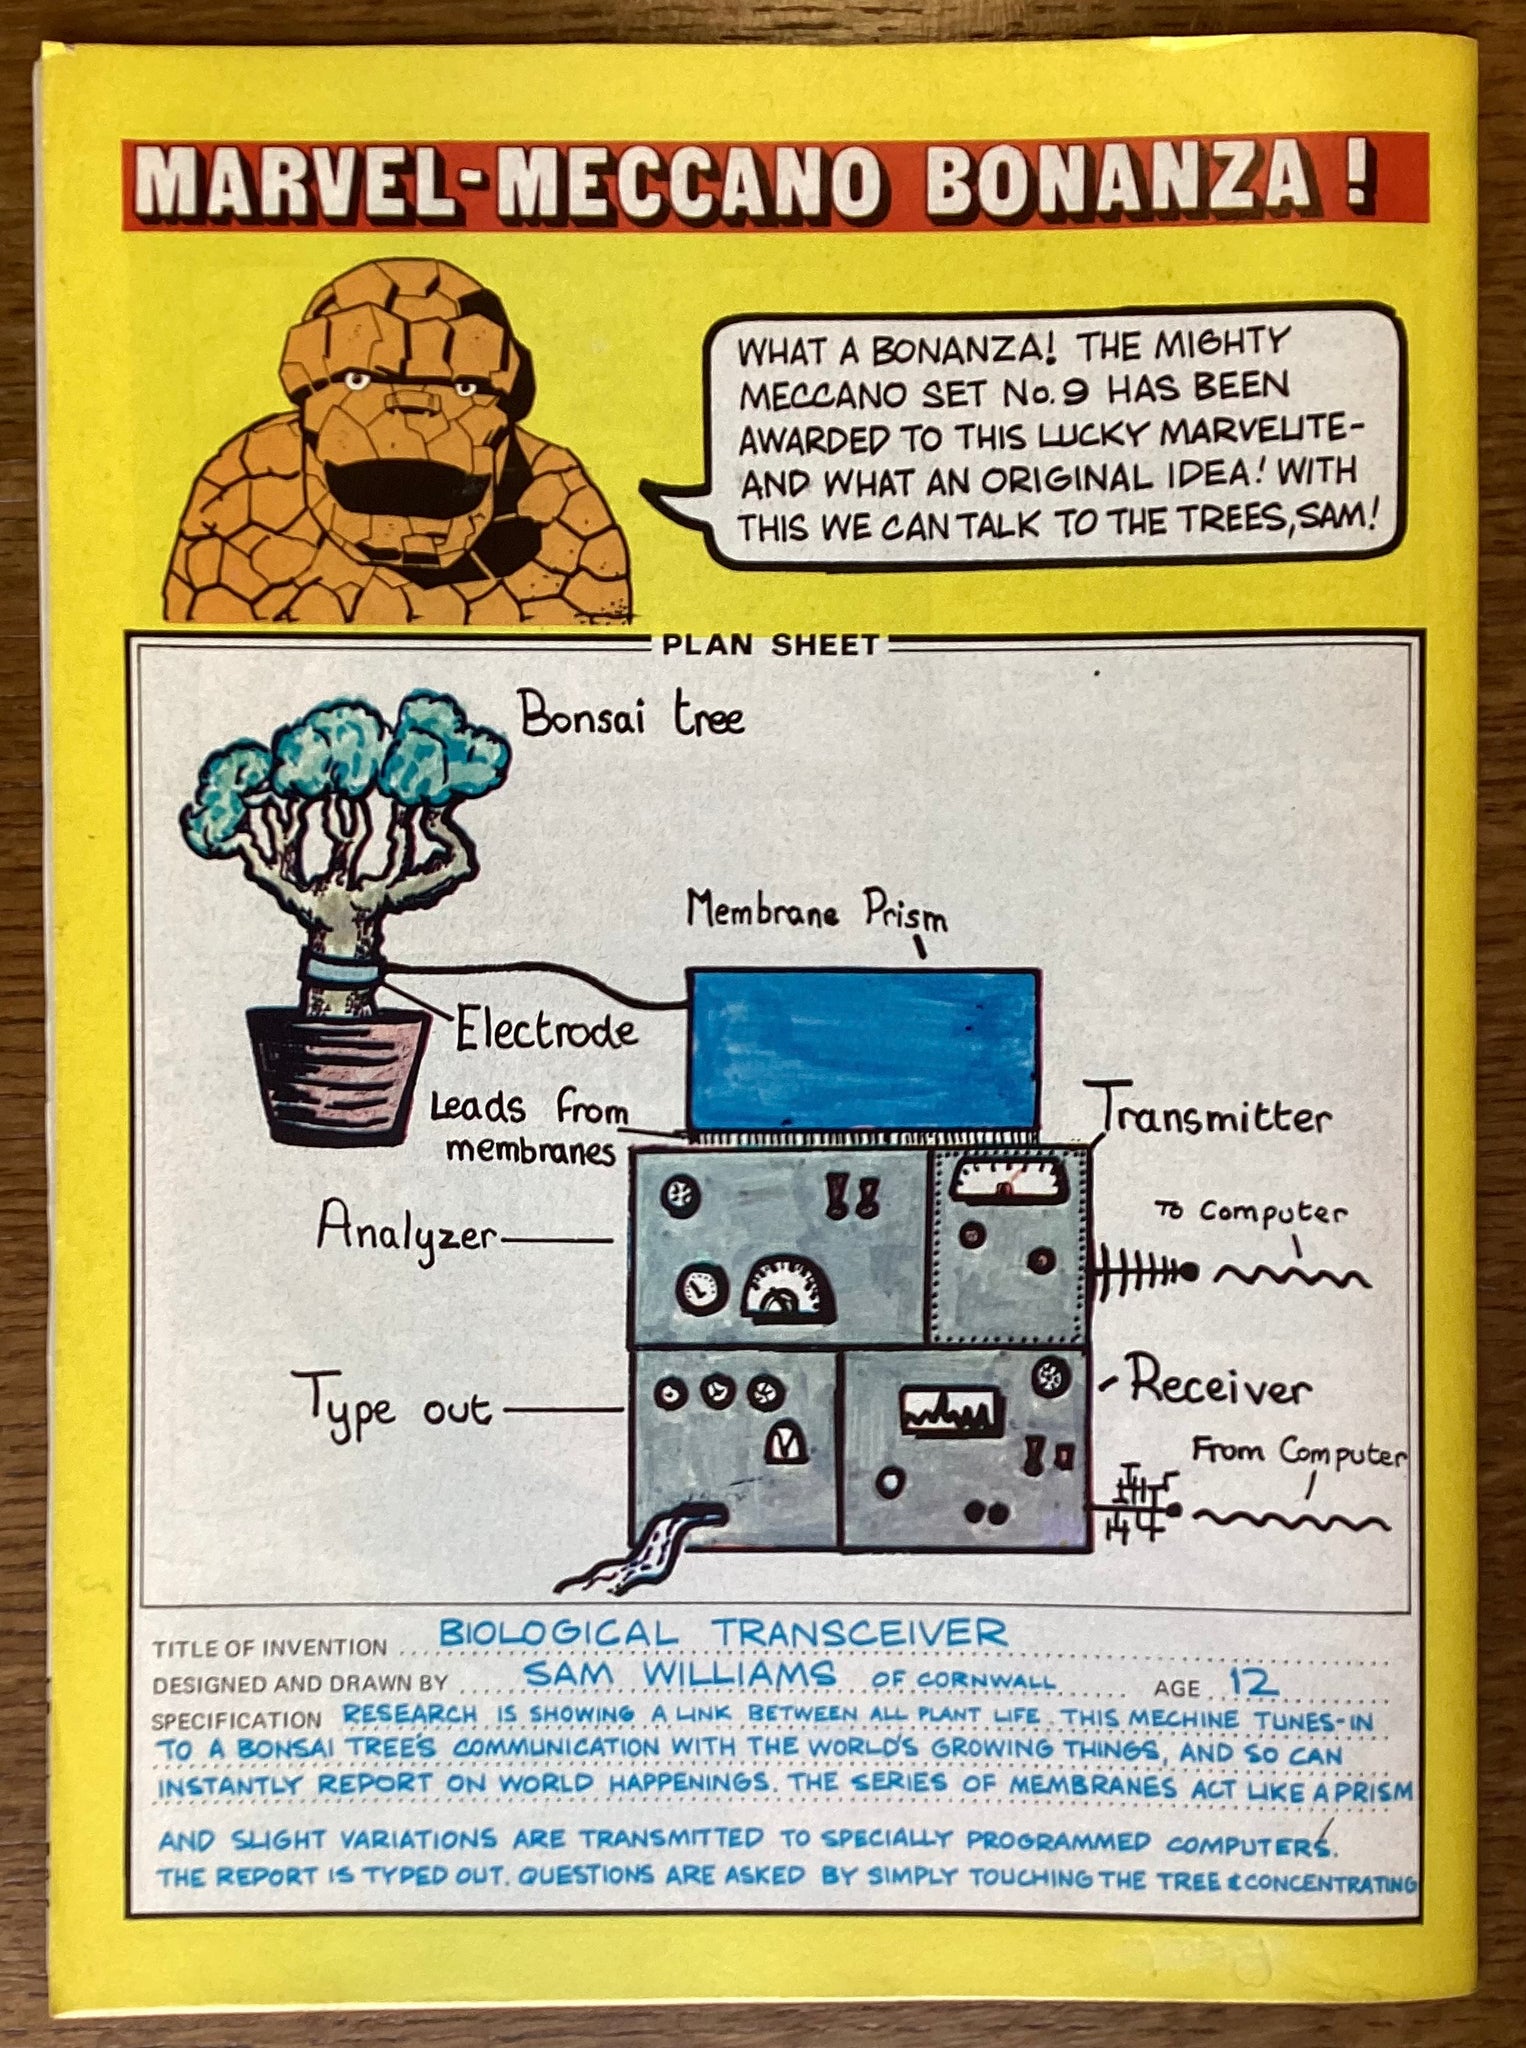 MARVEL-MECCANO BONANZA!
WHAT A BONANZA! THE MIGHTY
MECCANO SET No. 9 HAS BEEN
AWARDED TO THIS LUCKY MARVELITE-
AND WHAT AN ORIGINAL IDEA! WITH
THIS WE CAN TALK TO THE TREES, SAM!
PLAN SHEET
Bonsai tree
Membrane Prism
Electrode
Leads from
membranes
Transmitter
To Computer
Analyzer
Type out
Receiver
From Computer
TITLE OF INVENTION BIOLOGICAL TRANSCEIVER
DESIGNED AND DRAWN BY SAM WILLIAMS OF CORNWALL AGE 12
SPECIFICATION RESEARCH IS SHOWING A LINK BETWEEN ALL PLANT LIFE. THIS MECHINE TUNES-IN
TO A BONSAI TREE'S COMMUNICATION WITH THE WORLD'S GROWING THINGS, AND SO CAN
INSTANTLY REPORT ON WORLD HAPPENINGS. THE SERIES OF MEMBRANES ACT LIKE A PRISM
AND SLIGHT VARIATIONS ARE TRANSMITTED TO SPECIALLY PROGRAMMED COMPUTERS.
THE REPORT IS TYPED OUT. QUESTIONS ARE ASKED BY SIMPLY TOUCHING THE TREE & CONCENTRATING